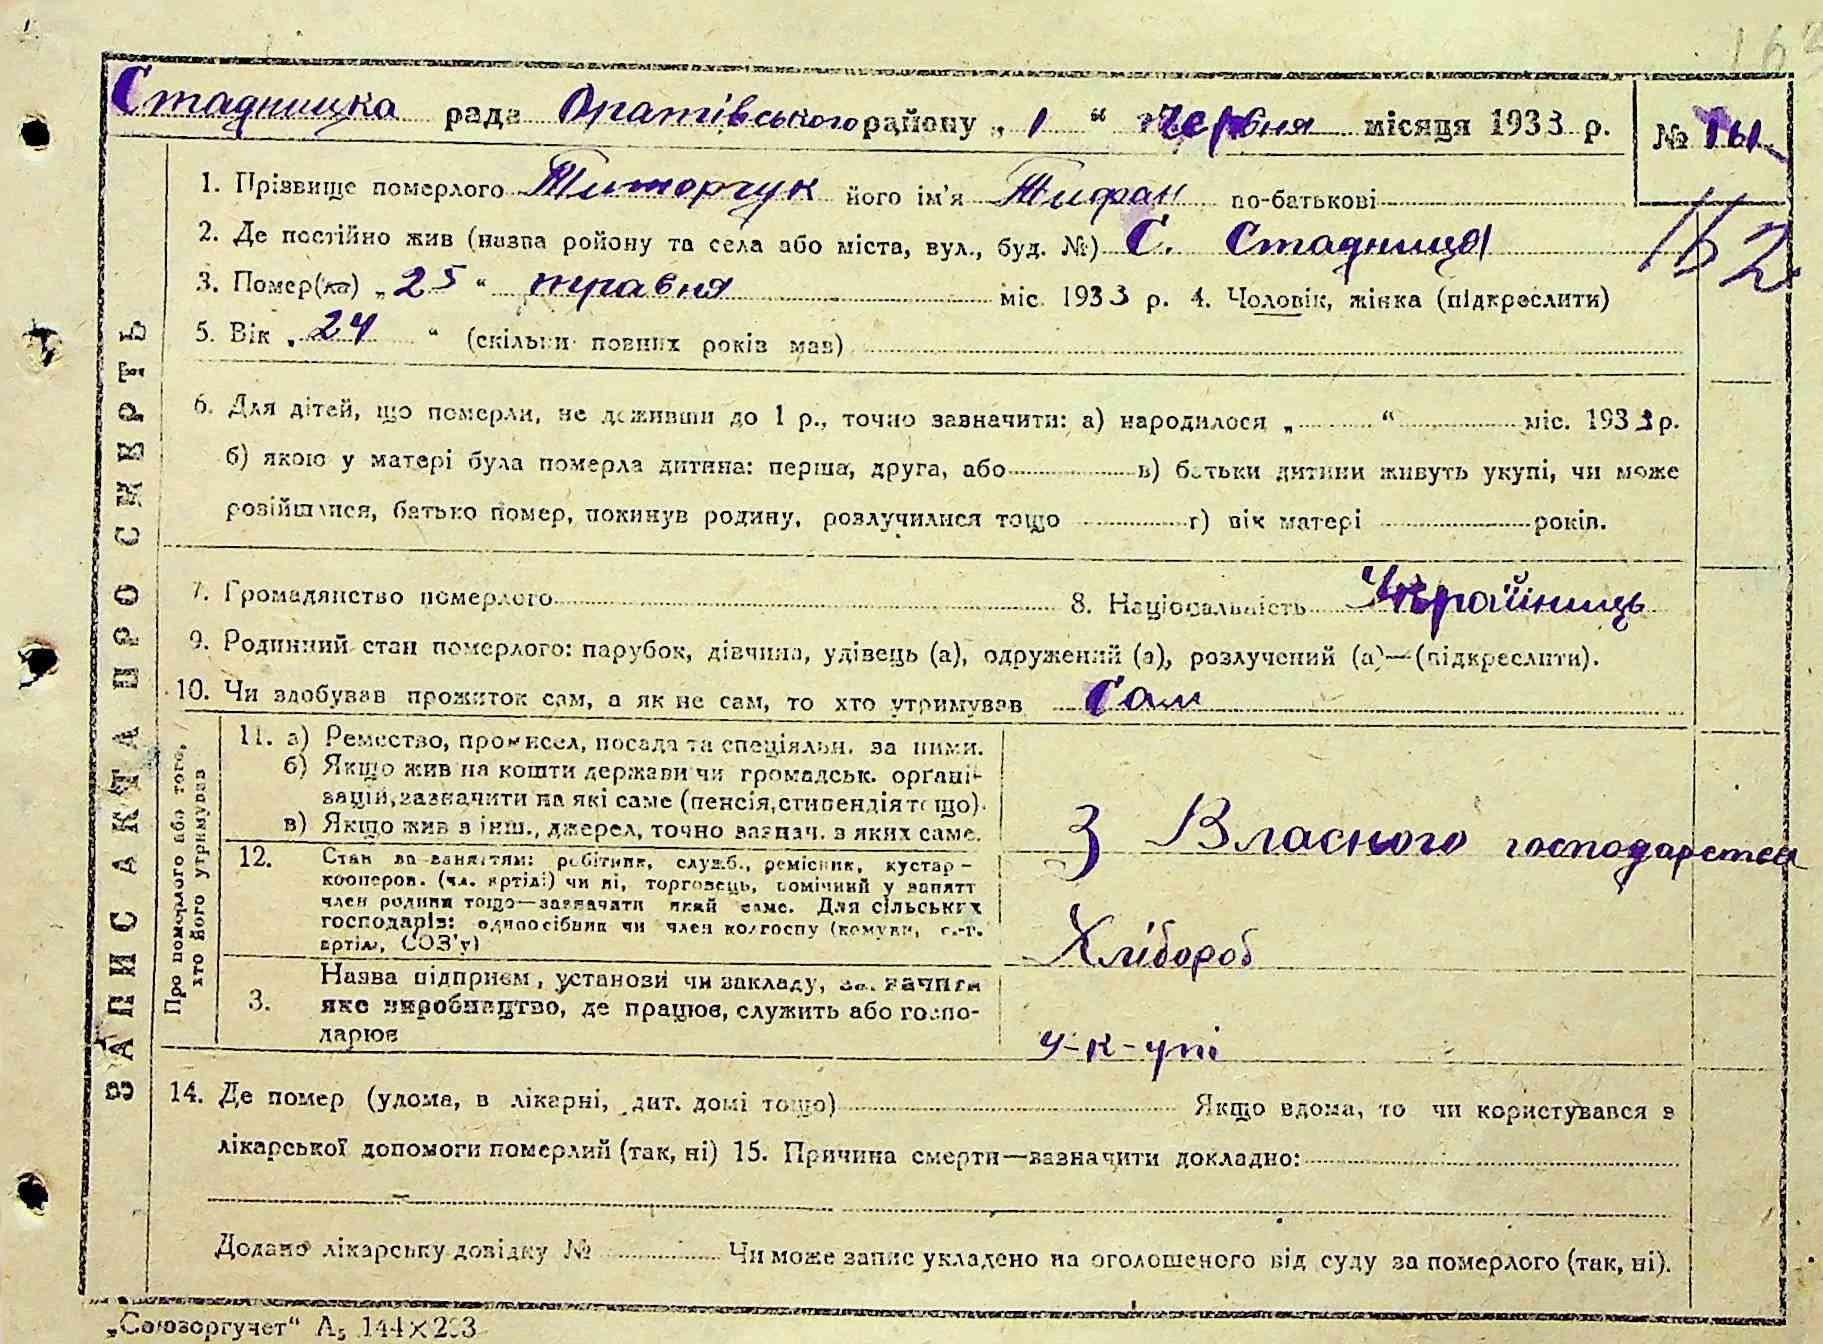 162
Стадницка рада Оратівського району „ 1 “ червня місяця 1933 р. №
1. Прізвище померлого Титорчук його ім'я Тифан по-батькові
162
2. Де постійно жив (назва ройону та села або міста, вул., буд. №) С. Стадниця
3. Помер(ла) „ 25 “ травня міс. 1933 р. 4. Чоловік, жінка (підкреслити)
5. Вік „ 24 “ (скільки повних років мав)
6. Для дітей, що померли, не доживши до 1 р., точно зазначити: а) народилося „ “ міс. 1933 р.
б) якою у матері була померла дитина: перша, друга, або в) батьки дитини живуть укупі, чи може
розійшлися, батько помер, покинув родину, розлучилися тощо г) вік матері років.
7. Громадянство померлого 8. Національність Україниць
9. Родинний стан померлого: парубок, дівчина, удівець (а), одружений (а), розлучений (а)—(підкреслити).
10. Чи здобував прожиток сам, а як не сам, то хто утримував Сам
ЗАПИС АКТА ПРО СМЕРТЬ
Про померлого або того,
хто його утримував
11. а) Ремество, промисел, посада та спеціяльн. за ними.
б) Якщо жив на кошти держави чи громадськ. орґані-
зацій, зазначити на які саме (пенсія, стипендія тощо).
в) Якщо жив з інш., джерел, точно зазнач. з яких саме.
З Власного господарства
12. Стан за заняттям: робітник, служб., ремісник, кустар-
кооперов. (чл. артілі) чи ні, торговець, помічний у занятт
член родини тощо—зазначати який саме. Для сільських
господарів: одноосібник чи член колгоспу (комуни, с.-г.
артілі, СОЗ'у)
Хлібороб
3. Назва підприєм., установи чи закладу, зазначити
яке виробництво, де працює, служить або госпо-
дарює
14. Де помер (удома, в лікарні, дит. домі тощо) Якщо вдома, то чи користувався з
лікарської допомоги померлий (так, ні) 15. Причина смерти—зазначити докладно:
Додано лікарську довідку № Чи може запис укладено на оголошеного від суду за померлого (так, ні).
„Союзоргучет“ А₅ 144×203